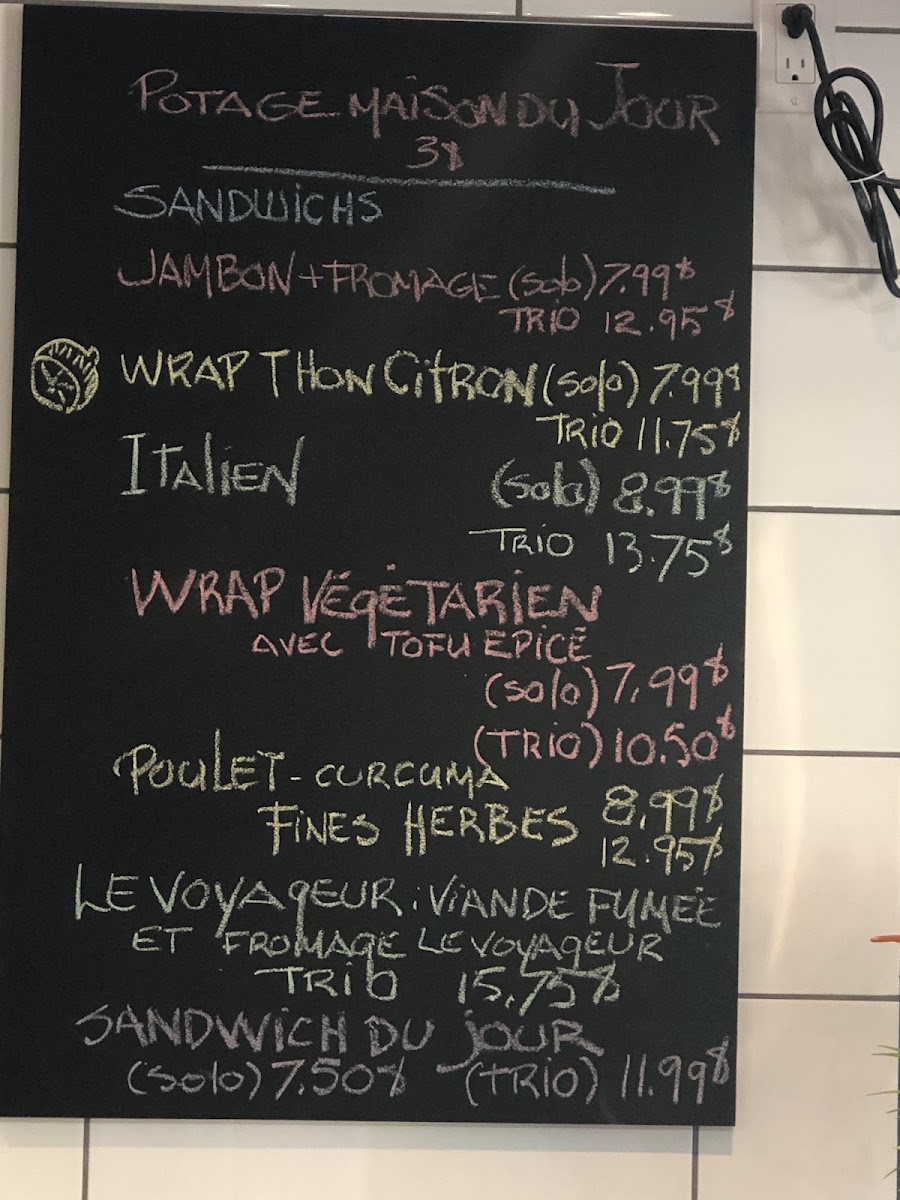 POTAGE MAISON DU JOUR
3$
SANDWICHS
JAMBON + FROMAGE (solo) 7.99$
TRIO 12.95$
WRAP THON CITRON (solo) 7.99$
TRIO 11.75$
ITALIEN (solo) 8.99$
TRIO 13.75$
WRAP VÉGÉTARIEN
AVEC TOFU ÉPICÉ
(solo) 7,99$
(TRIO) 10.50$
POULET - CURCUMA
FINES HERBES 8,99$
12.95$
LE VOYAGEUR : VIANDE FUMÉE
ET FROMAGE LE VOYAGEUR
TRIO 15,75$
SANDWICH DU JOUR
(solo) 7.50$ (TRIO) 11.99$